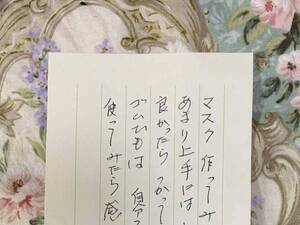 マスク作ってみ
あまり上手には
良かったらつかって
ゴムひもは 自分
使ってみたら感